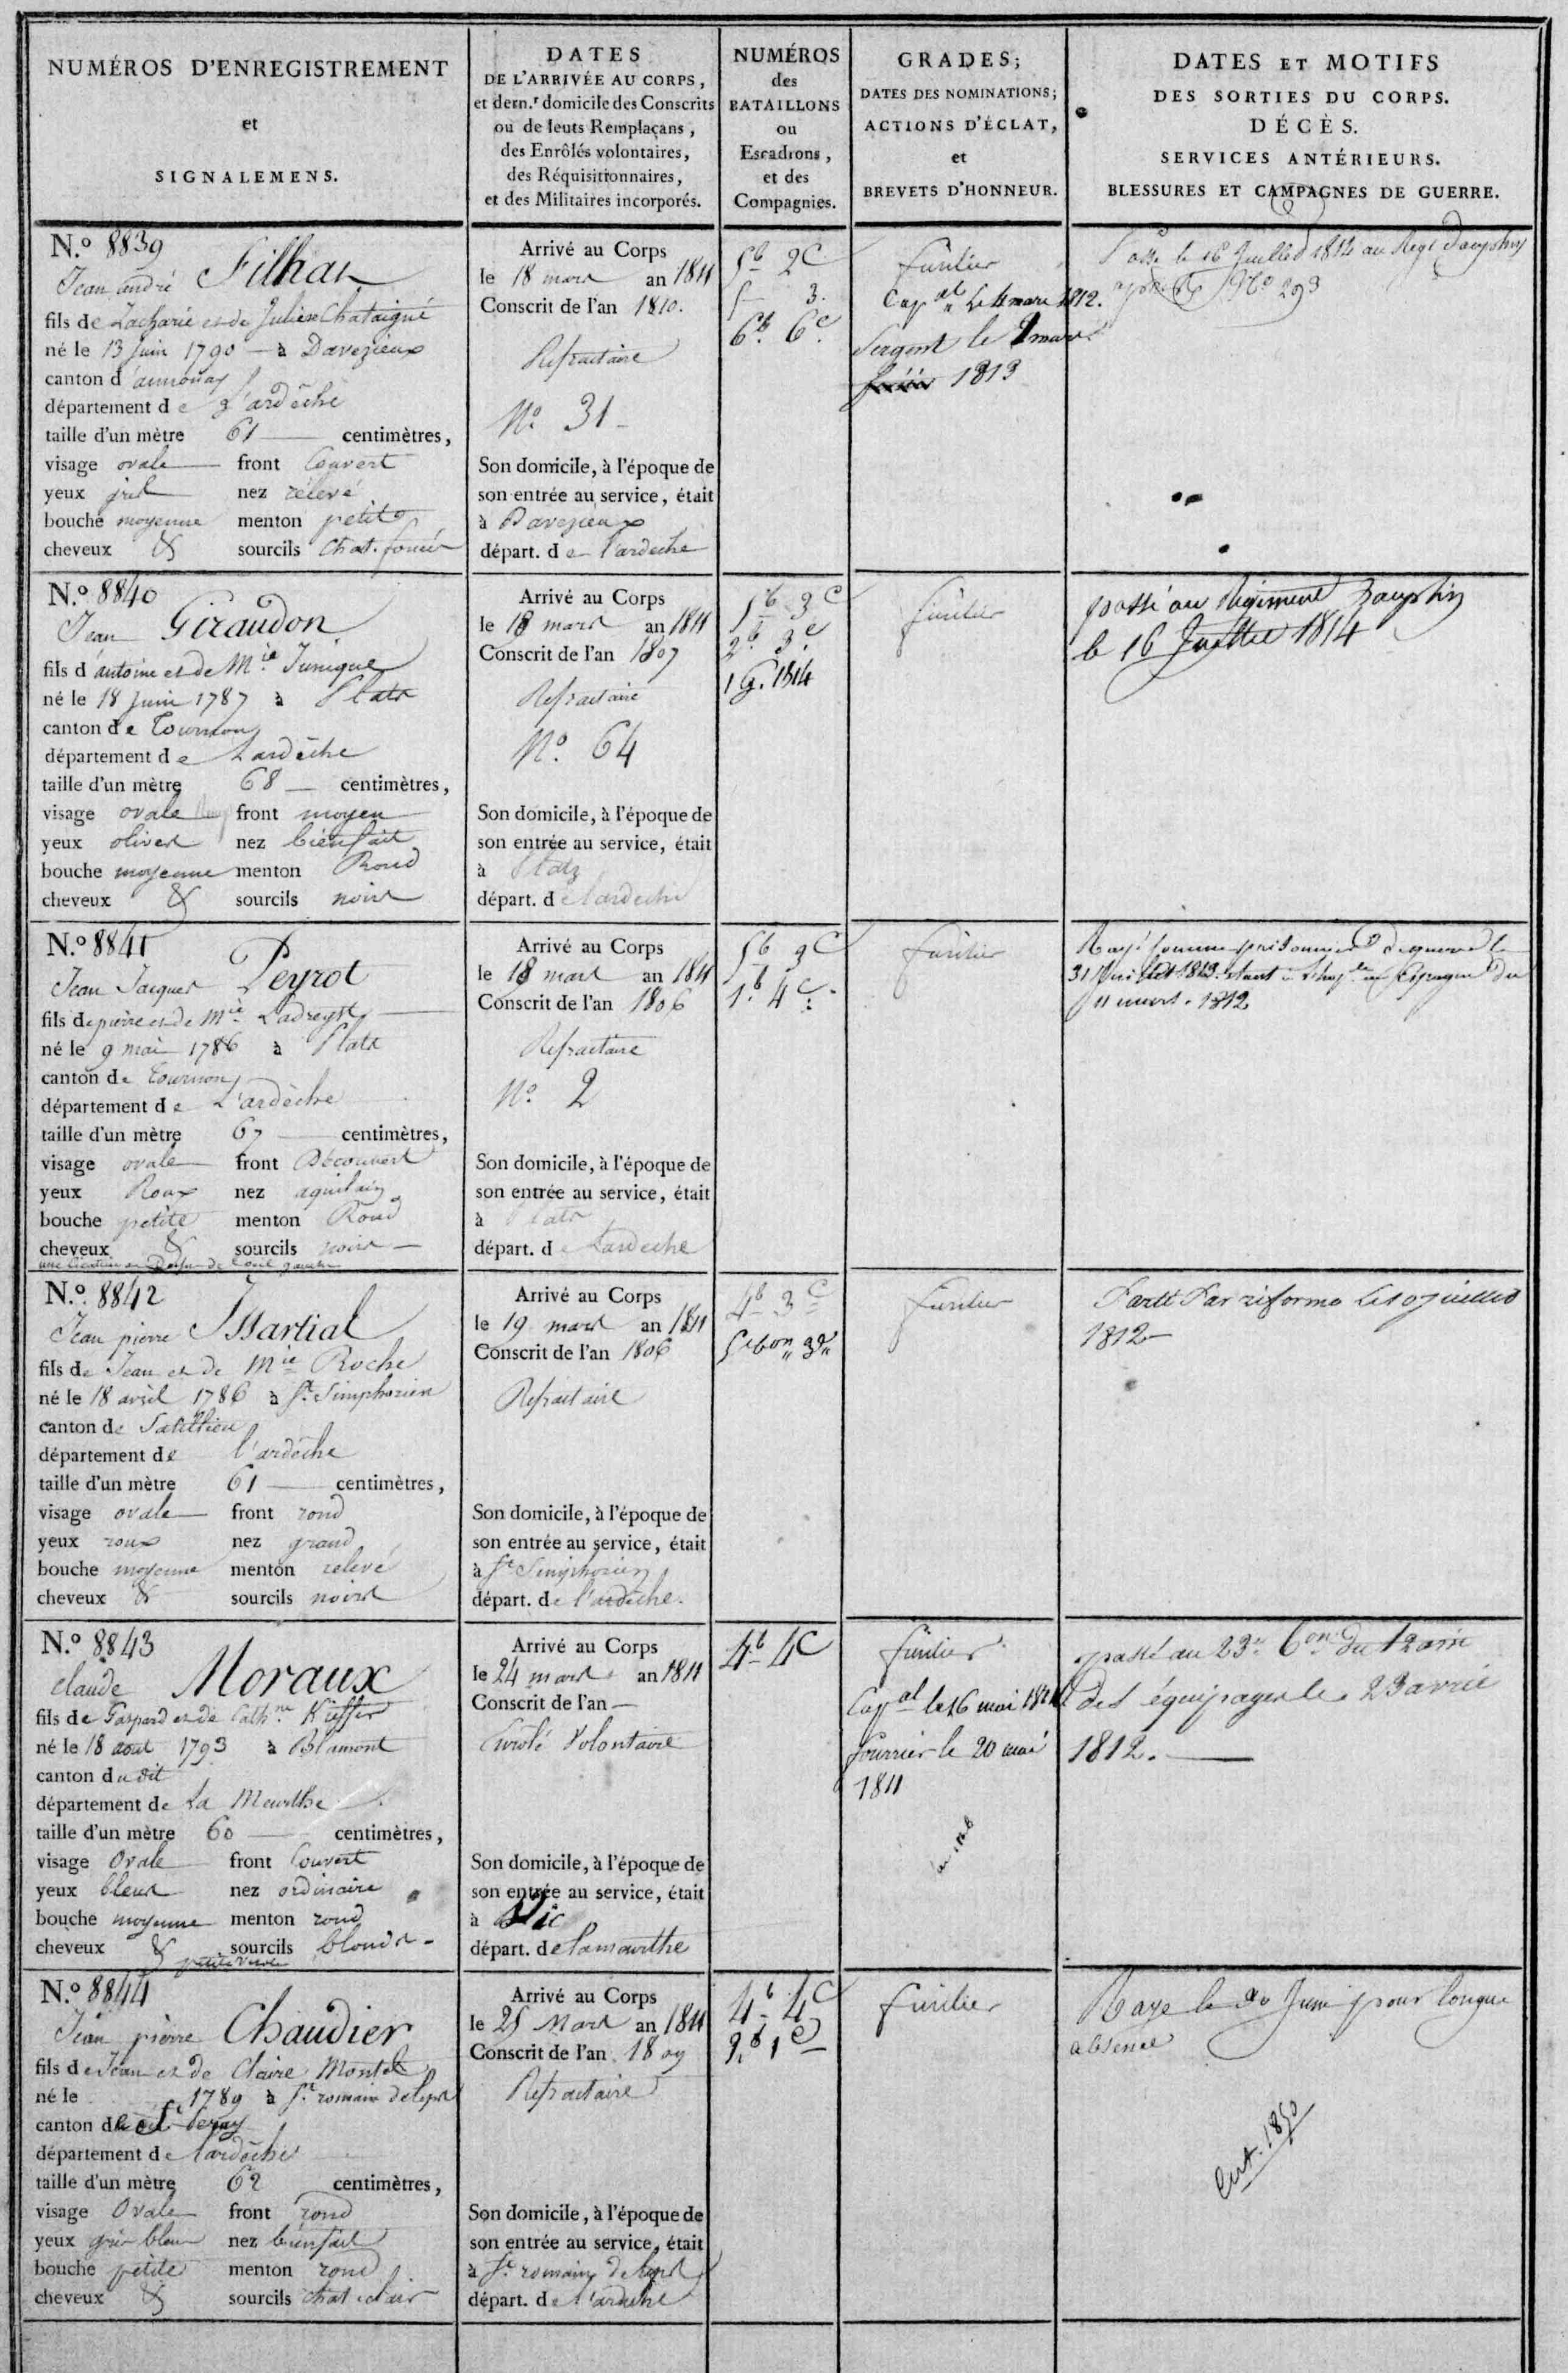 NUMÉROS D'ENREGISTREMENT
et
SIGNALEMENS.
DATES
DE L'ARRIVÉE AU CORPS,
et dern.r domicile des Conscrits
ou de leurs Remplaçans,
des Enrôlés volontaires,
des Réquisitionnaires,
et des Militaires incorporés.
NUMÉROS
des
BATAILLONS
ou
Escadrons,
et des
Compagnies.
GRADES;
DATES DES NOMINATIONS;
ACTIONS D'ÉCLAT,
et
BREVETS D'HONNEUR.
DATES ET MOTIFS
DES SORTIES DU CORPS.
DÉCÈS.
SERVICES ANTÉRIEURS.
BLESSURES ET CAMPAGNES DE GUERRE.
N.º 8839
Jean andré Filhat
fils de Zacharie et de Julien Chataigné
né le 13 Juin 1790 à Davezieux
canton d'annonay
département de l'ardèche
taille d'un mètre 61 centimètres,
visage ovale front Couvert
yeux gris nez rélevé
bouche moyenne menton petit
cheveux & sourcils chat. foncés
Arrivé au Corps
le 18 mars an 1811
Conscrit de l'an 1810.
Refractaire
Nº 31
Son domicile, à l'époque de
son entrée au service, était
à Davezieux
départ. de l'ardeche
5b 2C
5 3.
6b. 6c.
fusilier
Capal le 4 mars 1812.
Sergent le 1 mars
1813
Passé le 16 Juillet 1814 au Regt Dauphin
Nº 293
N.º 8840
Jean Giraudon
fils d'antoine et de Mie Junique
né le 18 juin 1787 à Plats
canton de Tournon
département de Lardèche
taille d'un mètre 68 centimètres,
visage ovale front moyen
yeux olives nez bienfait
bouche moyenne menton Rond
cheveux & sourcils noirs
Arrivé au Corps
le 18 mars an 1811
Conscrit de l'an 1807
Refractaire
Nº. 64
Son domicile, à l'époque de
son entrée au service, était
à Platz
départ. de lardeche
5b 3C
2b. 3c.
1 G. 1814
fusilier
passé au Régiment Dauphin
le 16 Juillet 1814
N.º 8841
Jean Jacques Peyrot
fils de pierre et de Mie Ladreyt
né le 9 mai 1786 à Plats
canton de Tournon
département de L'ardèche
taille d'un mètre 67 centimètres,
visage ovale front Découvert
yeux Roux nez aquilain
bouche petite menton Rond
cheveux & sourcils noirs
une Cicatrice au Dessus de l'oeil gauche
Arrivé au Corps
le 18 mars an 1811
Conscrit de l'an 1806
Refractaire
Nº. 2
Son domicile, à l'époque de
son entrée au service, était
à Plats
départ. de Lardeche
5b 3C
1.b 4c.
fusilier
Rayé comme prisonnier de guerre le
31 Juillet 1813 étant à l'hop.al en Espagne du
11 mars 1812
N.º 8842
Jean pierre Issartial
fils de Jean et de Mie Roche
né le 18 avril 1786 à St. Simphorien
canton de Satillieu
département de l'ardèche
taille d'un mètre 61 centimètres,
visage ovale front rond
yeux roux nez grand
bouche moyenne menton relevé
cheveux & sourcils noirs
Arrivé au Corps
le 19 mars an 1811
Conscrit de l'an 1806
Refractaire
Son domicile, à l'époque de
son entrée au service, était
à St Simphorien
départ. de l'ardèche.
4b 3C
5e bon 3e
fusilier
Partt Par réforme Le 10 juillet
1812
N.º 8843
Claude Moraux
fils de Gaspard et de Cathne Kieffer
né le 18 aout 1793 à Blamont
canton dudit
département de La Meurthe
taille d'un mètre 60 centimètres,
visage Ovale front Couvert
yeux bleus nez ordinaire
bouche moyenne menton rond
cheveux & sourcils blonds
petite verole
Arrivé au Corps
le 24 mars an 1811
Conscrit de l'an
Enrolé Volontaire
Son domicile, à l'époque de
son entrée au service, était
à Vic
départ. de lameurthe
4b 4C
fusilier
Capal le 16 mai 1811
fourrier le 20 mai
1811
passé au 23e. bon. du train
des équipages le 23 avril
1812.
N.º 8844
Jean pierre Chaudier
fils de Jean et de Claire Montel
né le 1789 à St. romain de lerps
canton de St peray
département de lardèche
taille d'un mètre 62 centimètres,
visage Ovale front rond
yeux gris bleu nez bienfait
bouche petite menton rond
cheveux & sourcils chat. clair
Arrivé au Corps
le 25 Mars an 1811
Conscrit de l'an 1809
Refractaire
Son domicile, à l'époque de
son entrée au service, était
à St romain de lerps
départ. de l'ardeche
4b 4C
2.b 1e
fusilier
Rayé le 20 Juin pour longue
absence
Cert. 1850